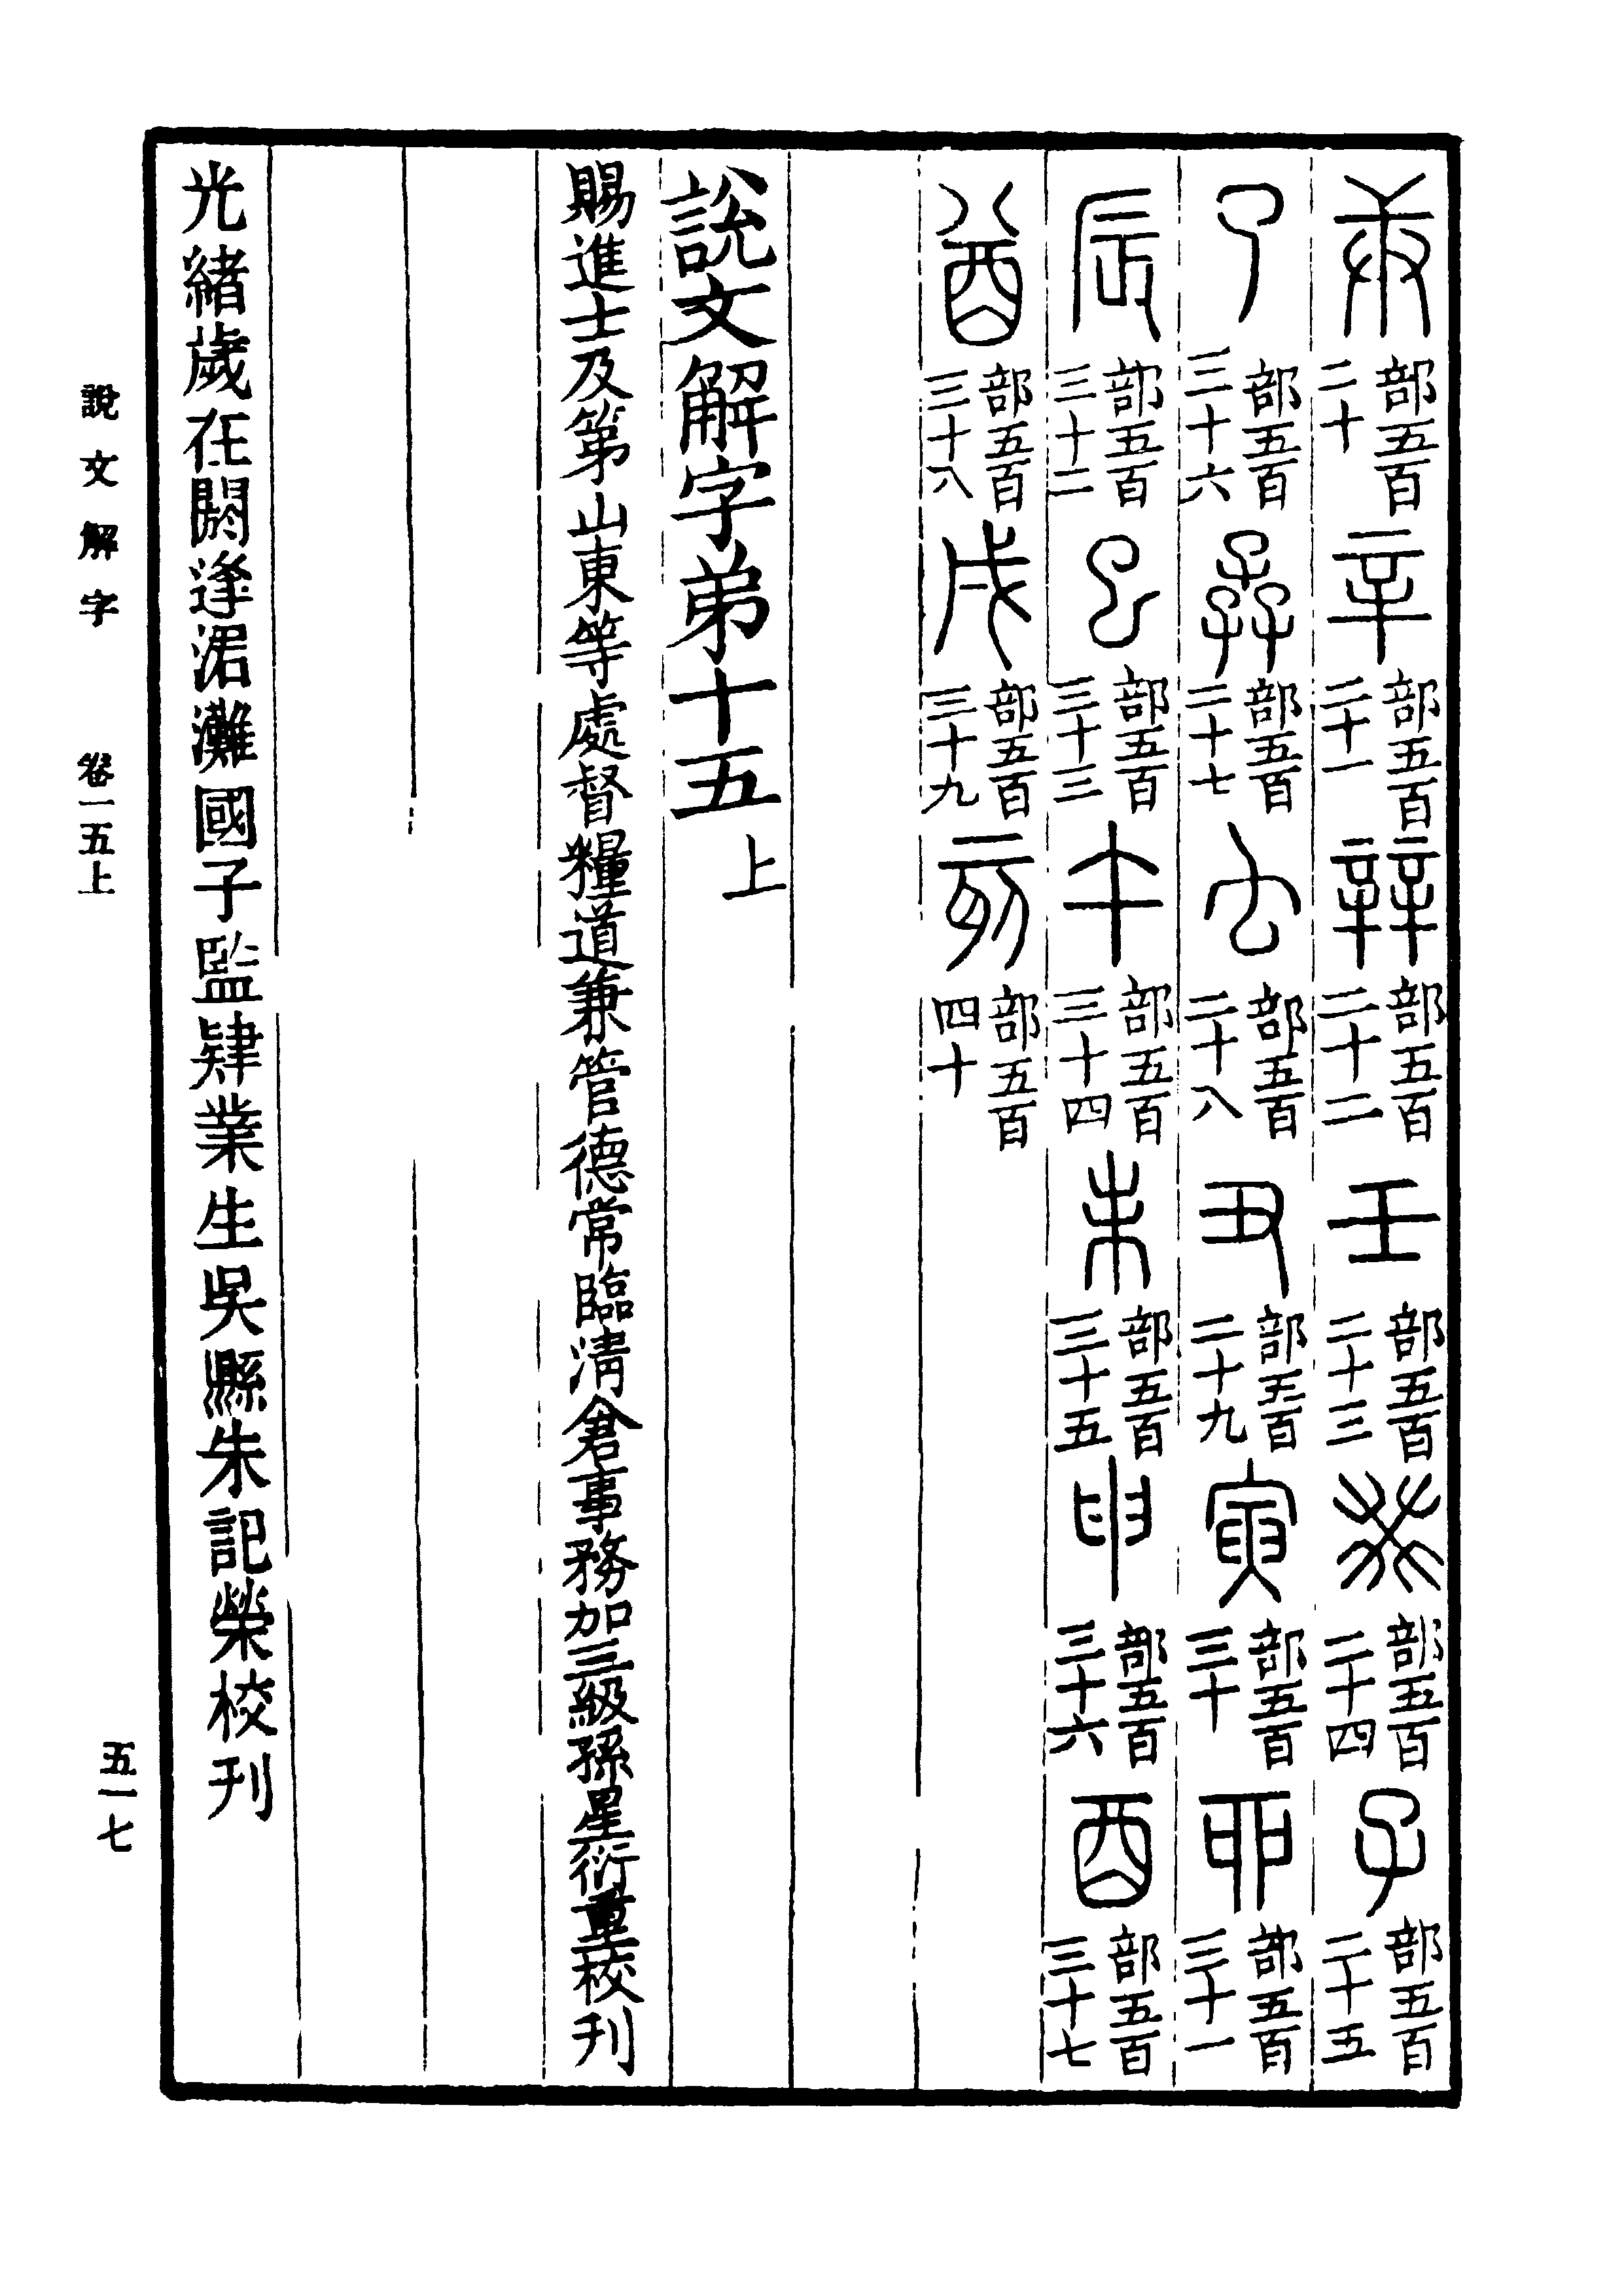 庚部五百二十辛部五百二十一辡部五百二十二壬部五百二十三癸部五百二十四子部五百二十五
了部五百三十六孨部五百二十七𠫓部五百二十八丑部五百二十九寅部五百三十卯部五百三十一
辰部五百三十二巳部五百三十三午部五百三十四未部五百三十五申部五百三十六酉部五百三十七
酋部五百三十八戌部五百三十九亥部五百四十
說文解字弟十五上
賜進士及第山東等處督糧道兼管德常臨清倉事務加三級孫星衍重校刊
光緒歲在閼逢涒灘國子監肄業生吳縣朱記榮校刊
說文解字 卷一五上 五一七